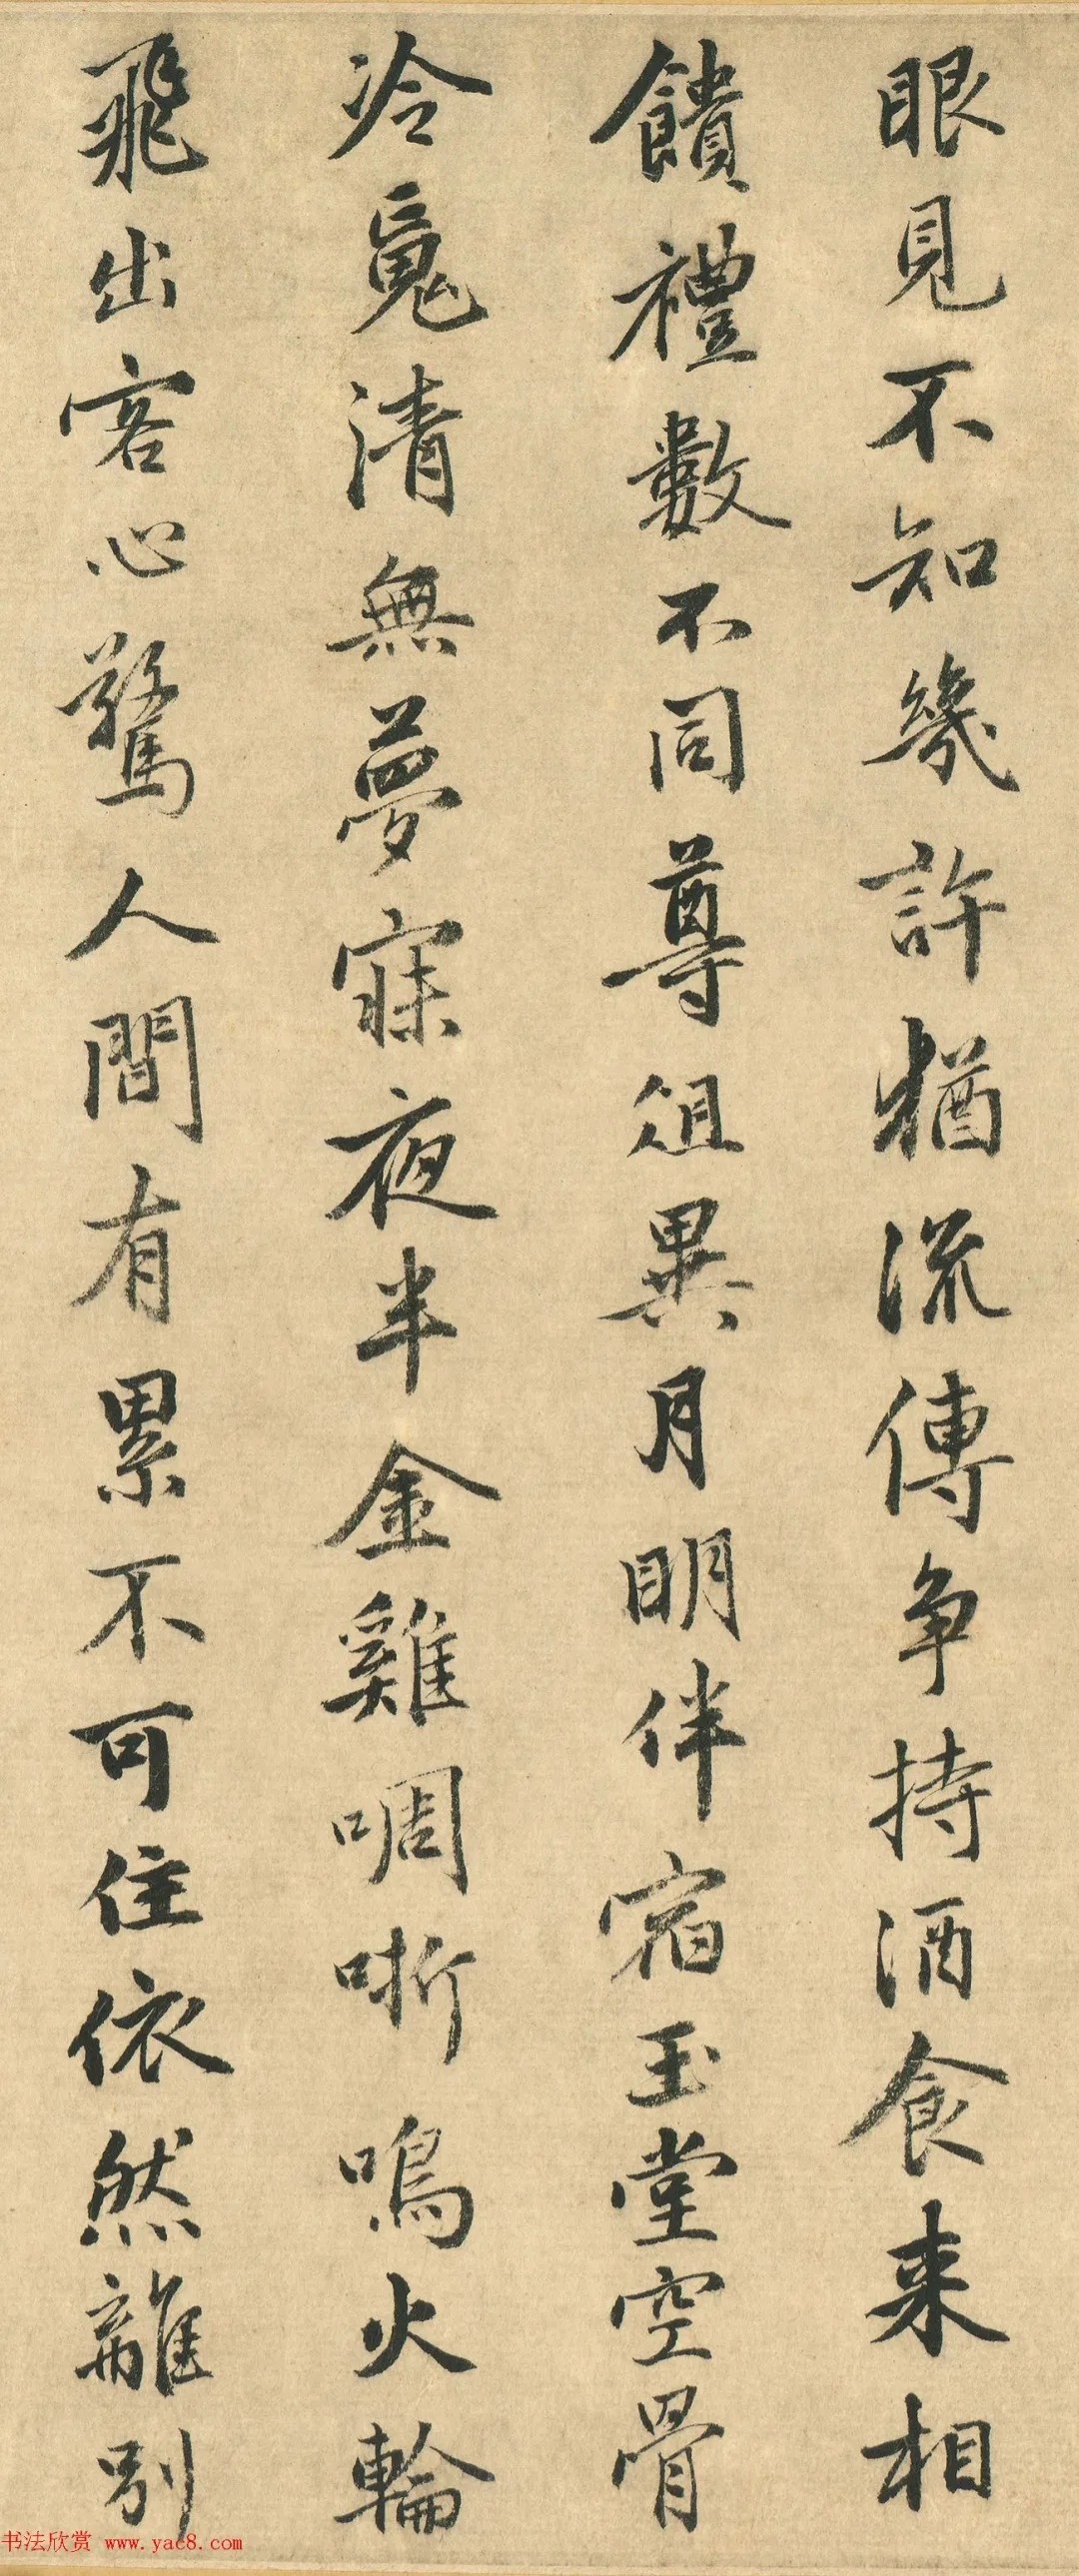 眼見不知幾許猶流傳争持酒食来相
饋禮數不同尊俎異月明伴宿玉堂空骨
冷䰟清無夢寐夜半金雞啁哳鳴火輪
飛出客心驚人間有累不可住依然離别
书法欣赏 www.yac8.com